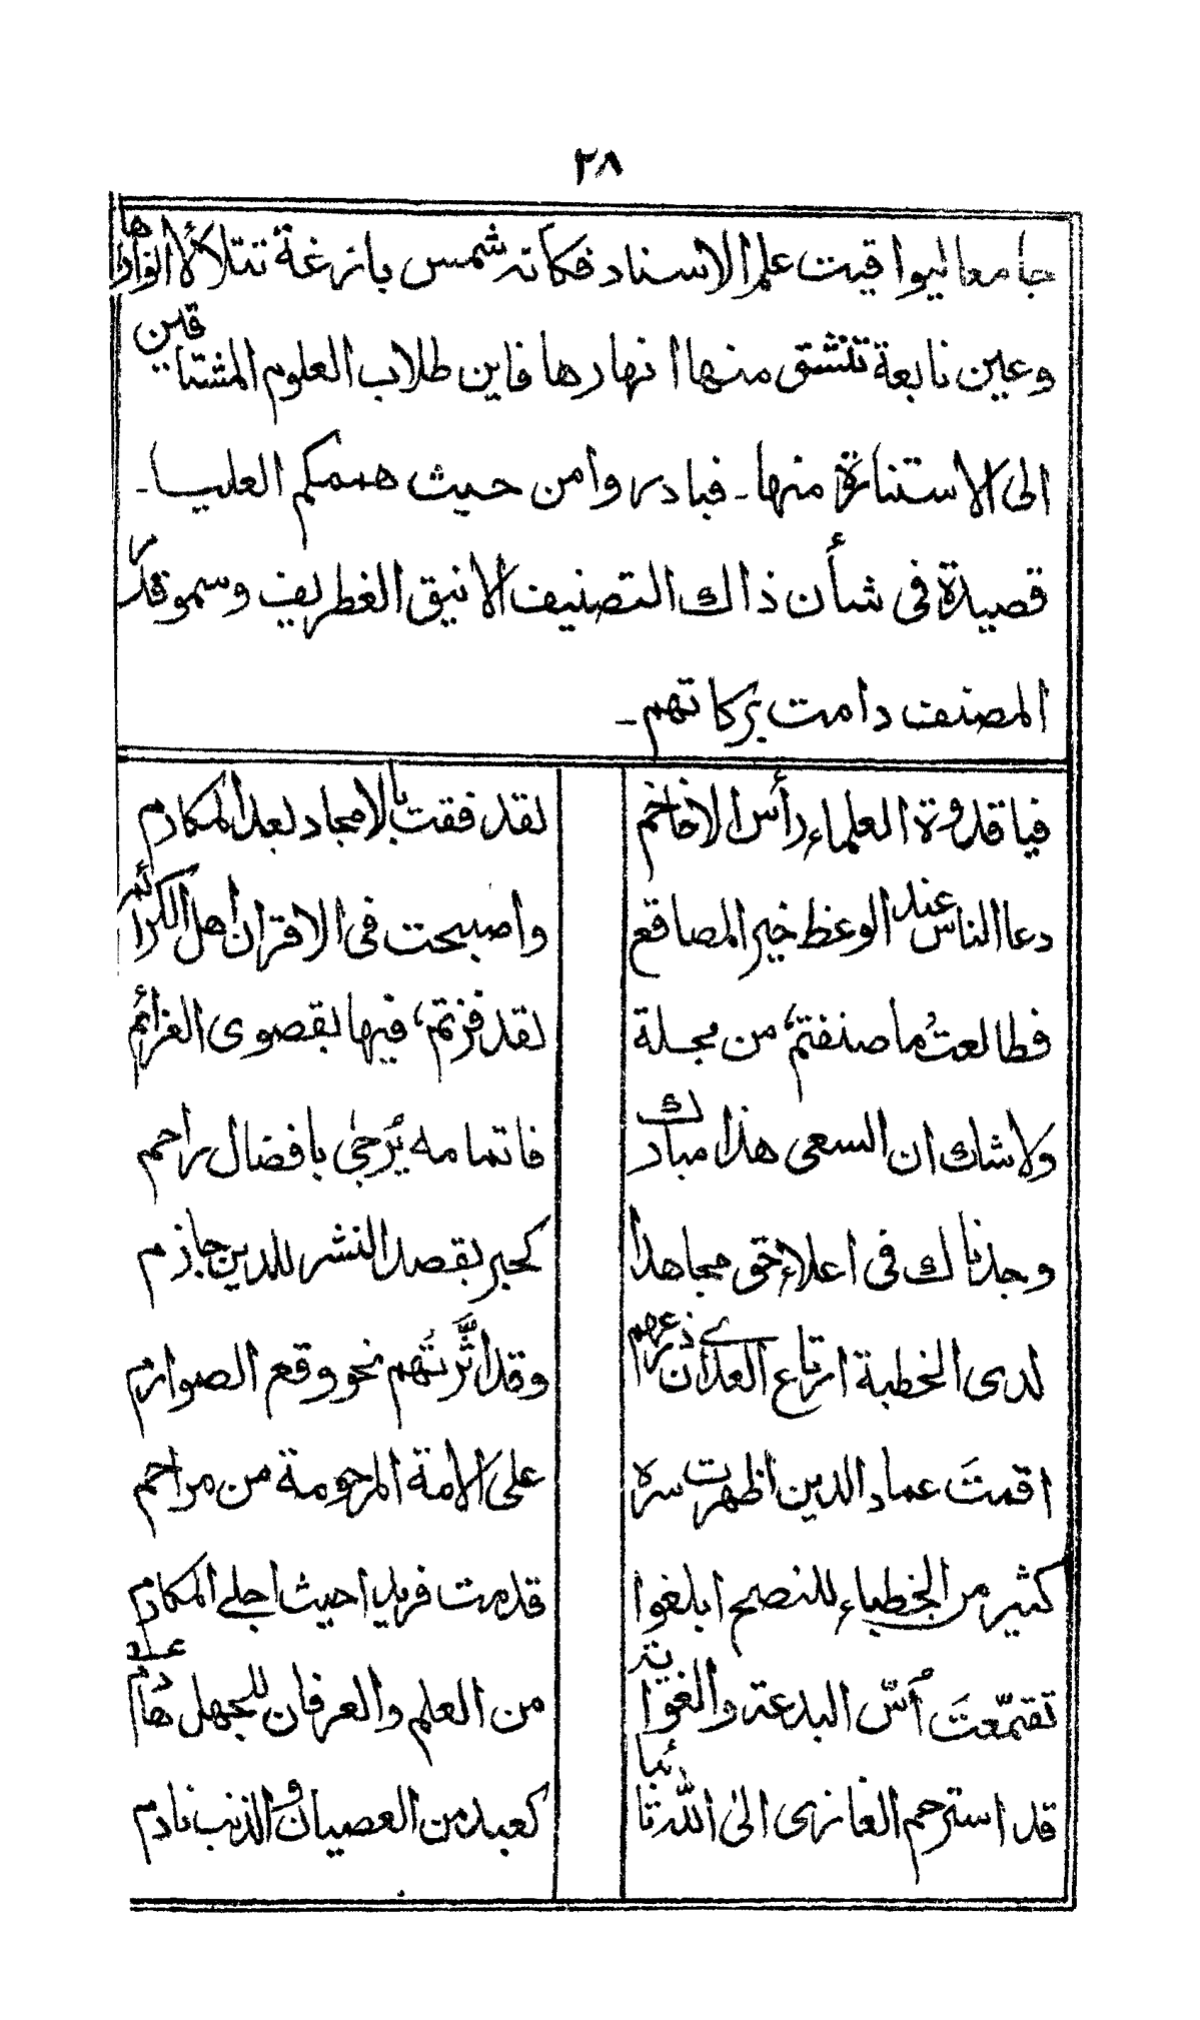 ٢٨
جامعا ليواقيت علم الاسناد فكأنه شمس بازغة تتلألأ انوارها
وعين نابعة تنشق منها انهارها فاين طلاب العلوم المشتاقين
الى الاستنارة منها ـ فبادروا من حيث هممكم العليا ـ
قصيدة فى شأن ذاك التصنيف الانيق الغطريف وسمو قدر
المصنف دامت بركاتهم ـ
فيا قدوة العلماء رأس الافاخم لقد فقت بالامجاد بعد المكارم
دعا الناس عند الوعظ خير المصاقع واصبحت فى الاقران اهل الكرائم
فطالعتُ ما صنفتم، من مجلة لقد فزتم، فيها بقصوى العزائم
ولا شك ان السعى هذا مبارك فاتمامه يُرجىٰ بافضال راحم
وجدناك فى اعلاء حق مجاهدا كحبر بقصد النشر للدين جازم
لدى الخطبة ارتاع العدا من ذعرهم وقد اثَّرتَهم نحو وقع الصوارم
اقمتَ عماد الدين اظهرت سره على الامة المرحومة من مراحم
كثير من الخطباء للنصح ابلغوا قدمت فريدا حيث اجلے المكارم
تقمّعتَ أسّ البدعة والغواية من العلم والعرفان للجهل هُادم
قد استرحم الغازى الى الله تائبا كعبد من العصيان والذنب نادم